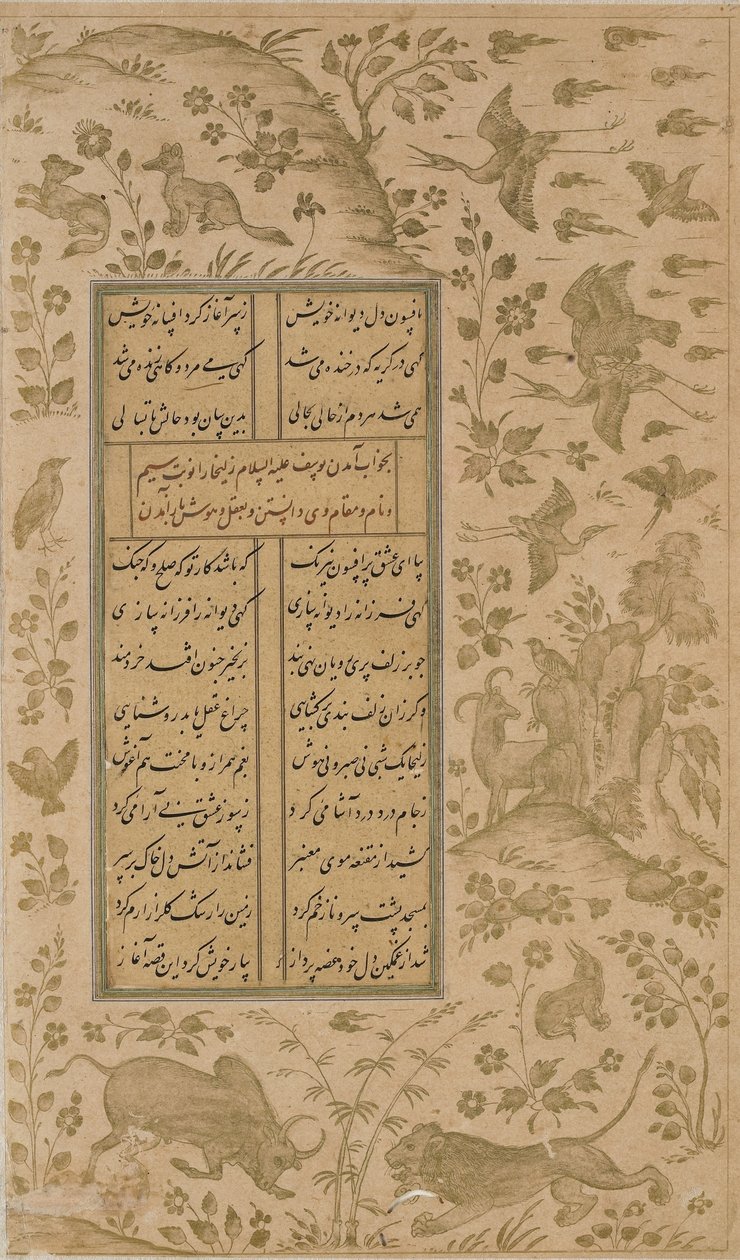 بافسون دل دیوانه خویش زپیر آغاز کرد افسانه خویش
گهی در گریه گه در خنده می‌شد گهی می مرد و گاهی زنده می‌شد
همی شد هر دم از حالی بحالی بدین سان بود حالش تا بسالی
بخواب آمدن یوسف علیه السلام زلیخا را نوبت سیم
و نام و مقام وی دانستن و بعقل و هوش باز آمدن
بیا ای عشق پر افسون و نیرنگ که باشد کار تو گه صلح و گه جنگ
گهی فرزانه را دیوانه سازی گهی دیوانه را فرزانه سازی
چو بر زلف پری رویان نهی بند بزنجیر جنون افتد خردمند
و گر زان زلف بندی برگشایی چراغ عقل یابد روشنایی
زلیخا یک شبی نی صبر و نی هوش بغم همراز و با محنت هم آغوش
ز جام درد درد آشامی کرد ز سوز عشق بی آرامی کرد
کشید از مقنعه موی معنبر فشاند از آتش دل خاک بر سر
بسجده پشت سرو ناز خم کرد زمین را رشک گلزار ارم کرد
شد از غمگین دل خود غصه پرداز بیار خویش کرد این قصه آغاز